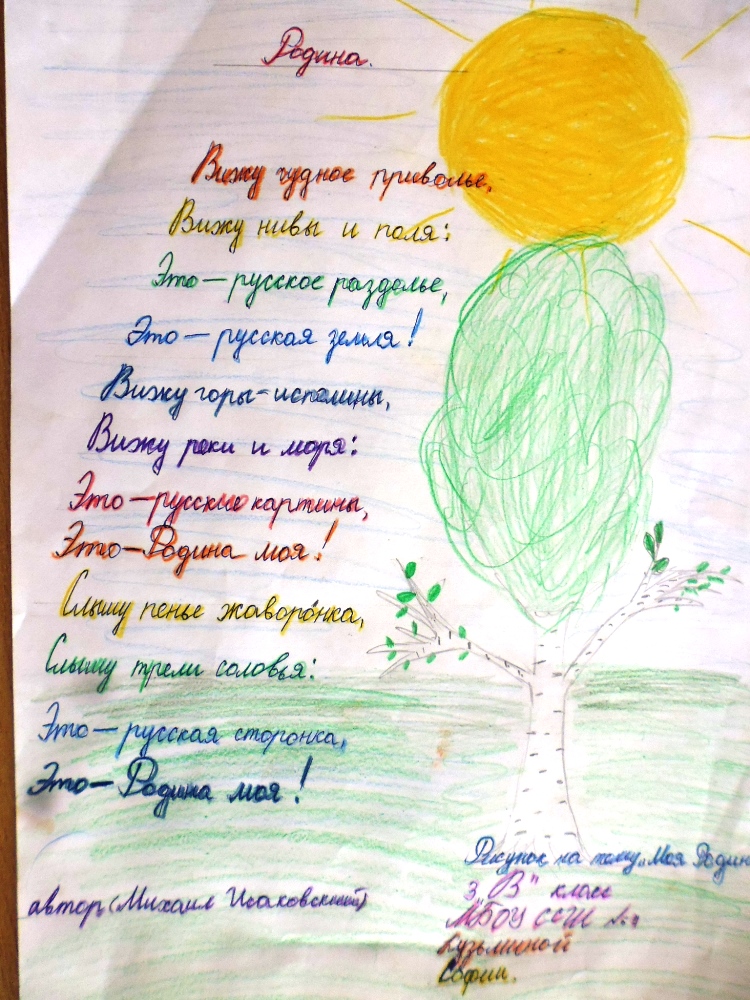 Родина.
Вижу чудное приволье,
Вижу нивы и поля:
Это — русское раздолье,
Это — русская земля!
Вижу горы-исполины,
Вижу реки и моря:
Это — русские картины,
Это — Родина моя!
Слышу пенье жаворонка,
Слышу трели соловья:
Это — русская сторонка,
Это — Родина моя!
автор (Михаил Исаковский)
Рисунок на тему „Моя Родин
3 „В" класс
МБОУ СОШ
Кузьминой
Софии.